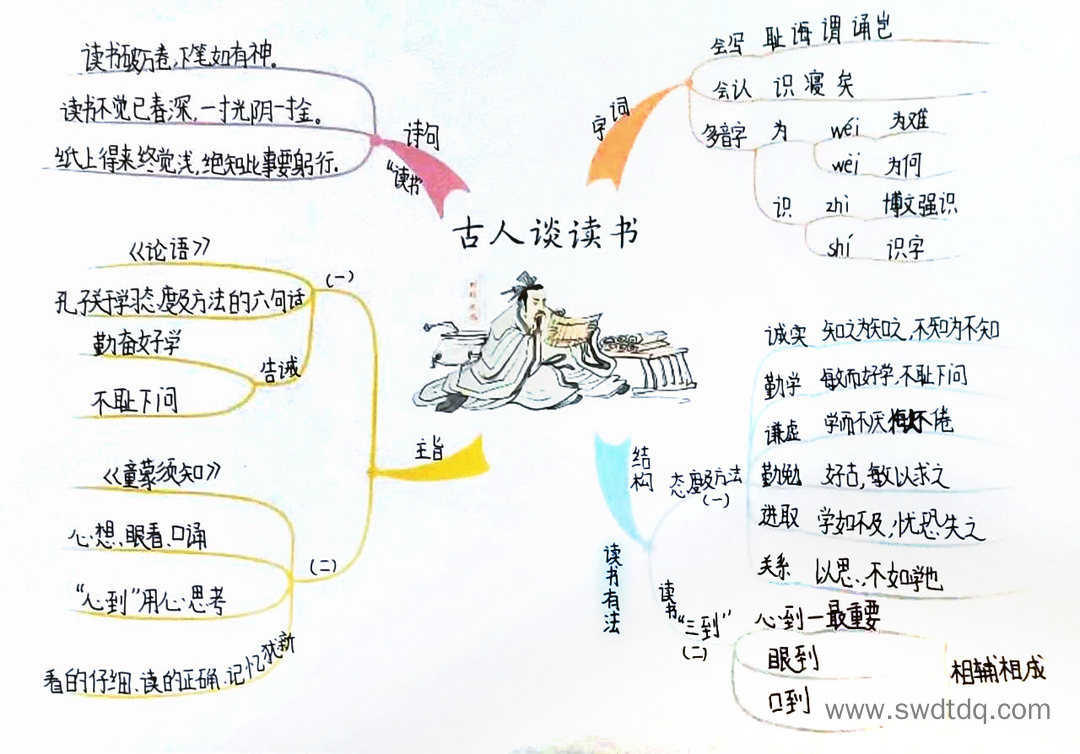 古人谈读书
诗句
"读书"
读书破万卷,下笔如有神。
读书不觉已春深,一寸光阴一寸金。
纸上得来终觉浅,绝知此事要躬行。
字词
会写 耻 诲 谓 诵 岂
会认 识 寝 矣
多音字 为 wéi 为难
wèi 为何
识 zhì 博文强识
shí 识字
主旨
(一)
《论语》
孔子关于学习态度及方法的六句话
告诫
勤奋好学
不耻下问
(二)
《童蒙须知》
心想、眼看、口诵
"心到"用心思考
看的仔细、读的正确、记忆犹新
结构
读书有法
态度及方法
(一)
诚实 知之为知之,不知为不知
勤学 敏而好学,不耻下问
谦虚 学而不厌 不倦
勤勉 好古,敏以求之
进取 学如不及,忧恐失之
关系 以思,不如学也
读书
"三到"
(二)
心到一最重要
眼到
口到
相辅相成
www.swdtdq.com